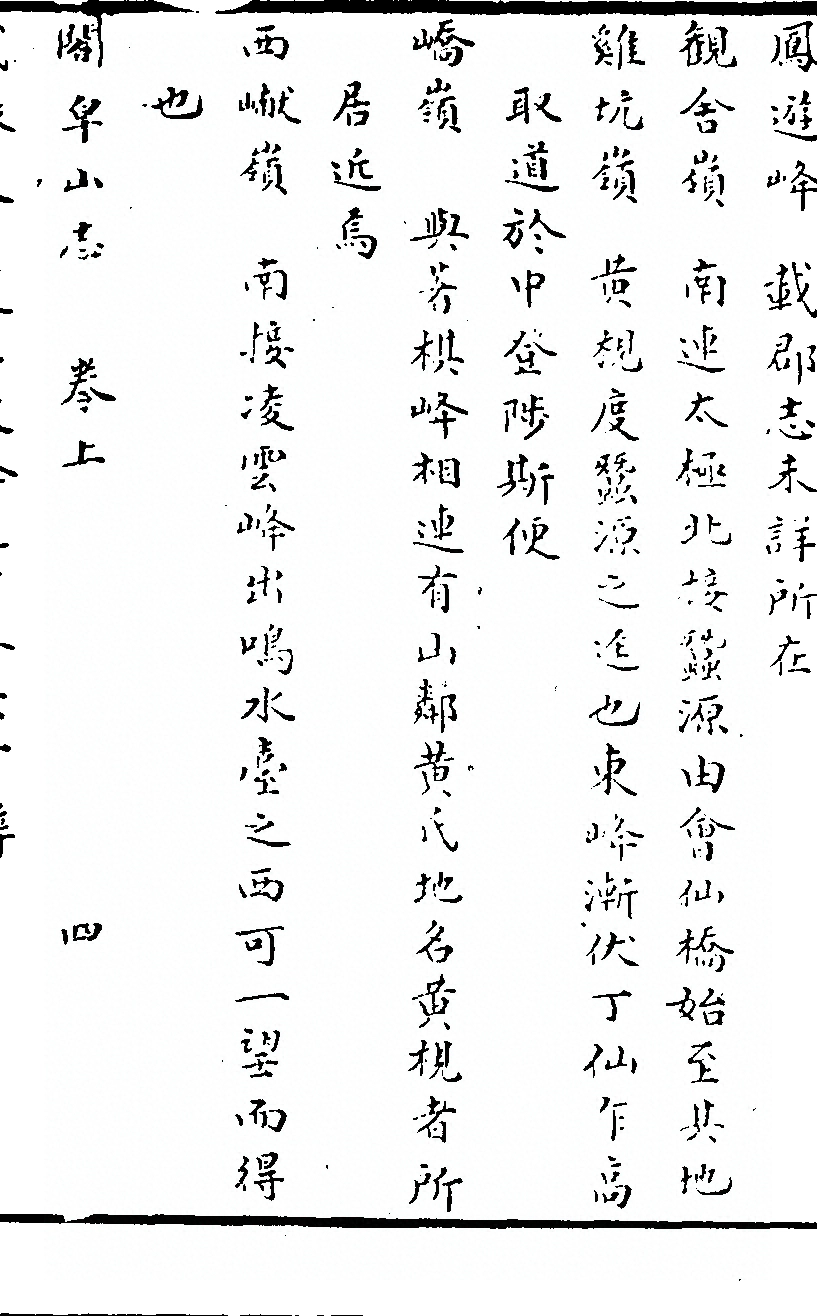 鳳遊峰　載郡志未詳所在
觀舍嶺　南連太極北接蠶源由會仙橋始至其地
雞坑嶺　黃梘度蠶源之迳也東峰漸伏丁仙乍高
取道於中登陟斯便
嶠嶺　與着棋峰相連有山鄰黃氏地名黃梘者所
居近焉
西嶽嶺　南接凌雲峰出鳴水臺之西可一望而得
也
閣皁山志　卷上　四